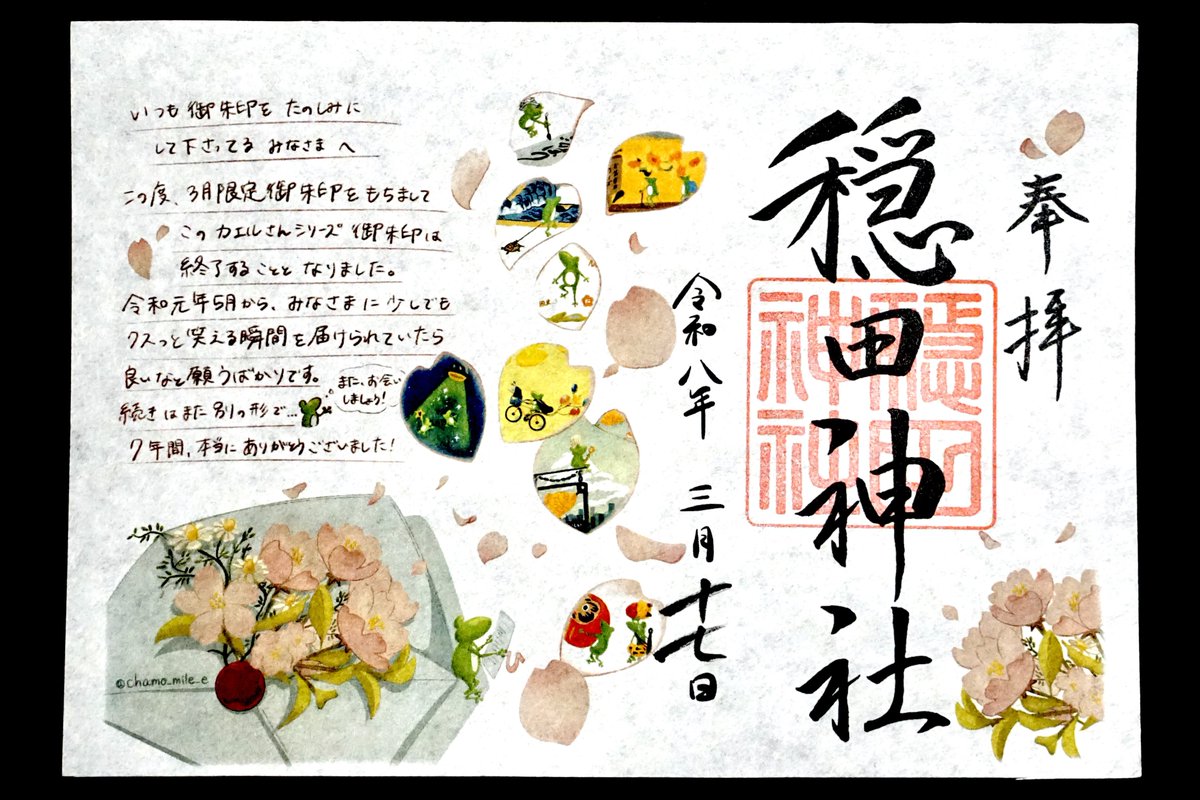 奉拝
穏田神社
穏田
神社
令和八年 三月十七日
いつも御朱印をたのしみに
して下さってるみなさまへ
この度、3月限定御朱印をもちまして
このカエルさんシリーズ御朱印は
終了することとなりました。
令和元年5月から、みなさまに少しでも
クスっと笑える瞬間を届けられていたら
良いなと願うばかりです。
続きはまた別の形で…
また、お会い
しましょう!
7年間、本当にありがとうございました!
@chamo_mile_e